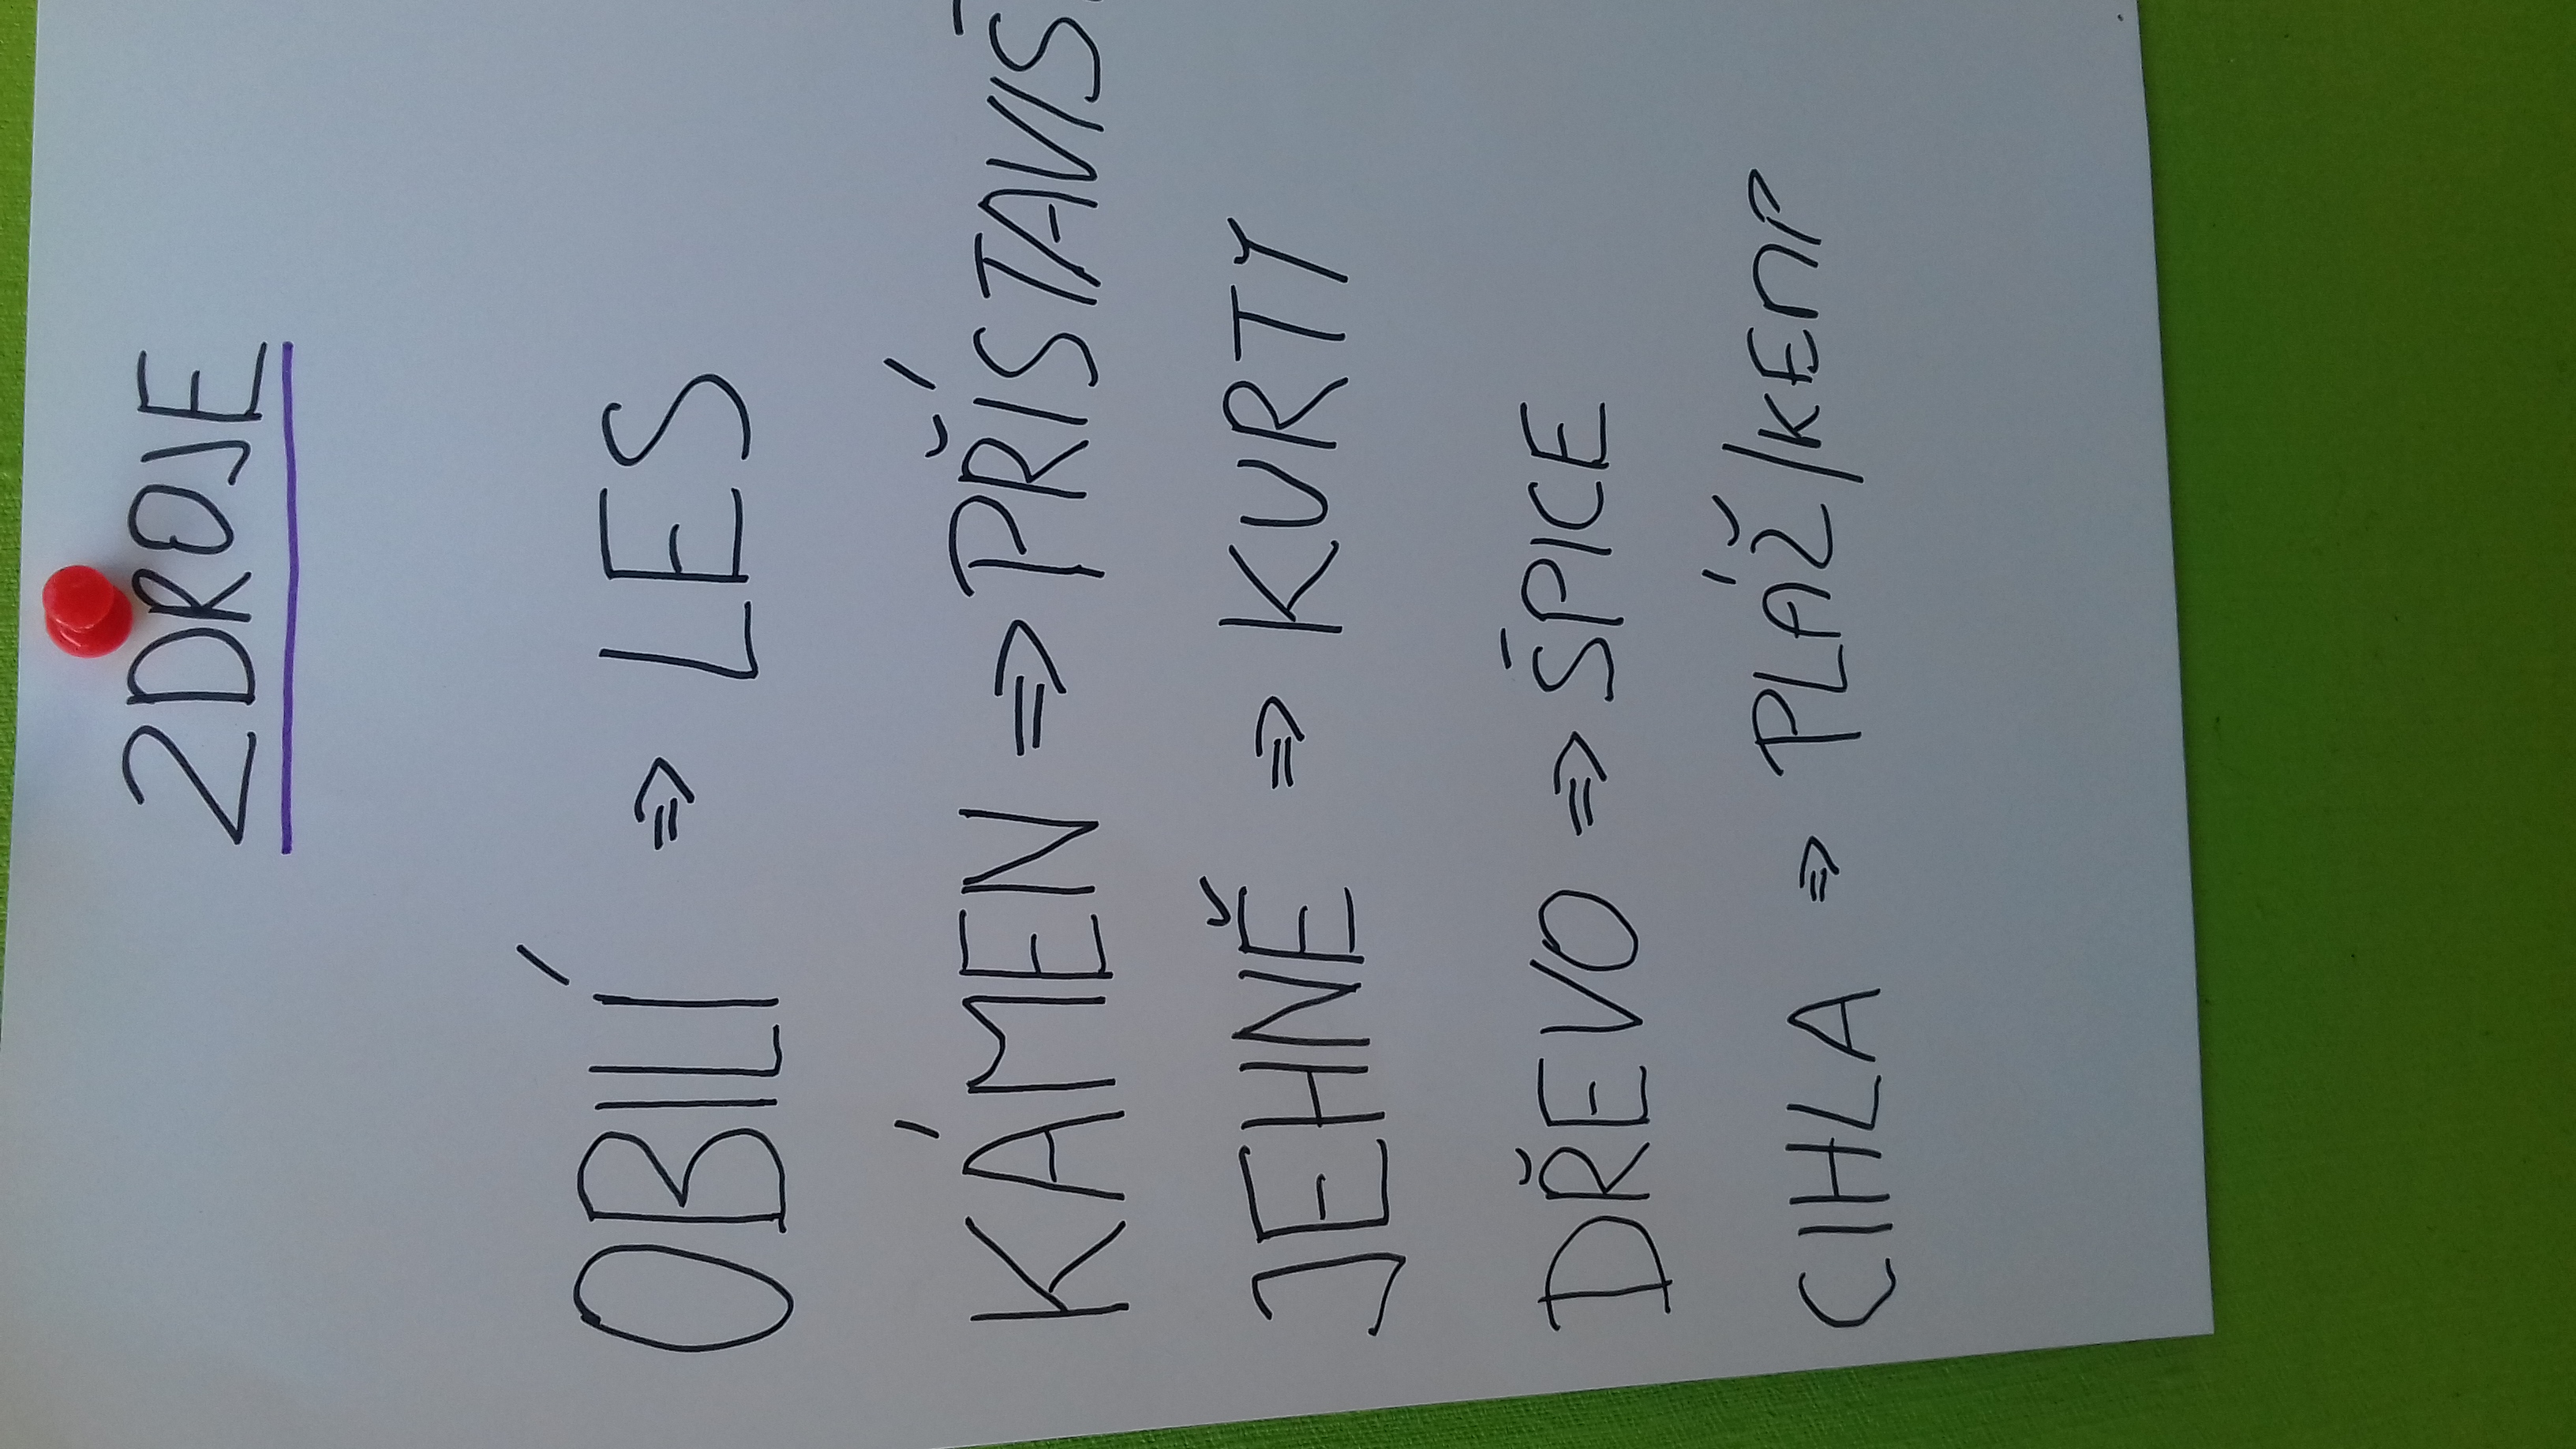 ZDROJE
OBILÍ ⇒ LES
KÁMEN ⇒ PŘÍSTAVIŠ
JEHNĚ ⇒ KURTY
DŘEVO ⇒ ŠPICE
CIHLA ⇒ PLÁŽ/KEMP